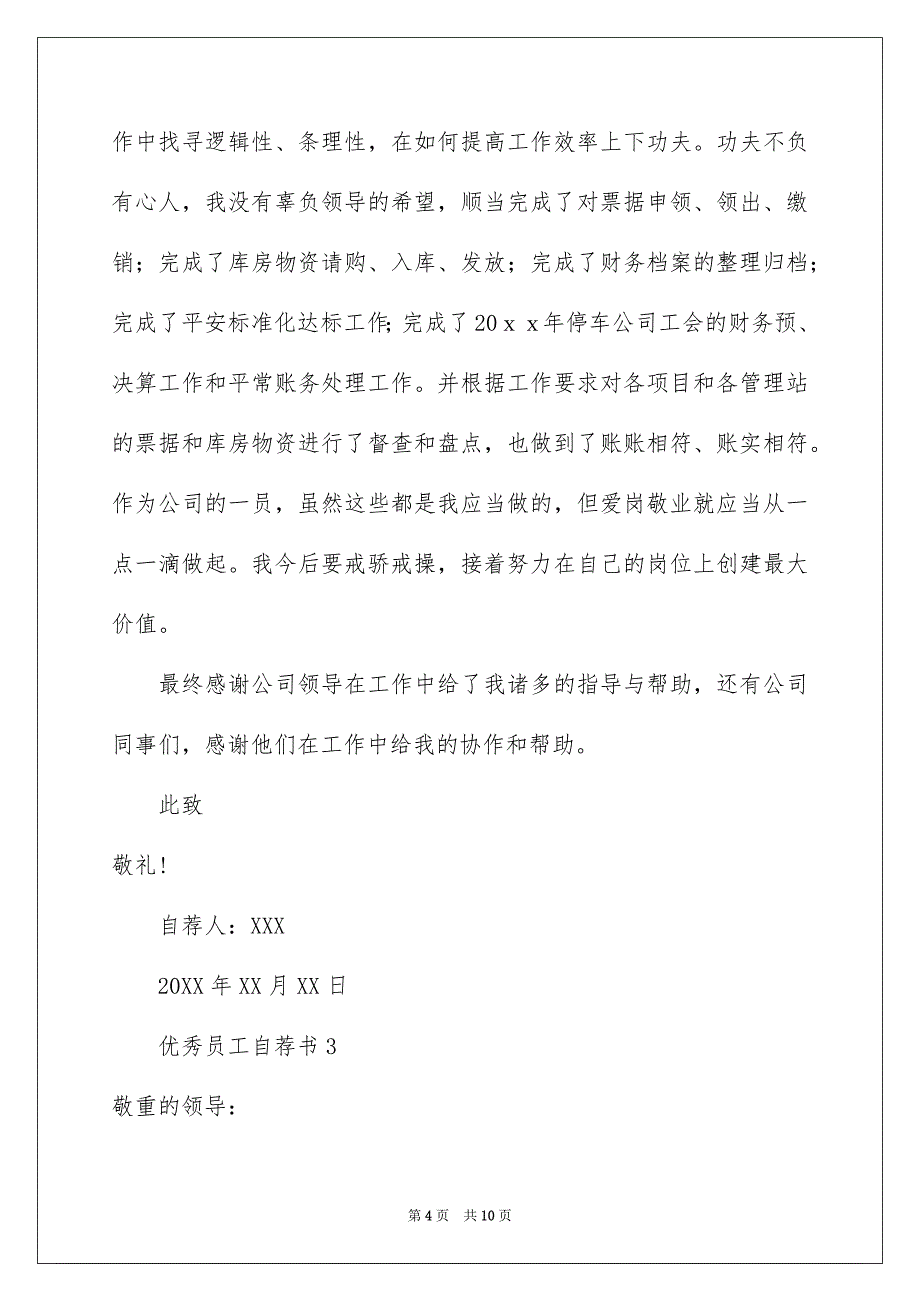 作中找寻逻辑性、条理性，在如何提高工作效率上下功夫。功夫不负
有心人，我没有辜负领导的希望，顺当完成了对票据申领、领出、缴
销；完成了库房物资请购、入库、发放；完成了财务档案的整理归档；
完成了平安标准化达标工作；完成了20ｘｘ年停车公司工会的财务预、
决算工作和平常账务处理工作。并根据工作要求对各项目和各管理站
的票据和库房物资进行了督查和盘点，也做到了账账相符、账实相符。
作为公司的一员，虽然这些都是我应当做的，但爱岗敬业就应当从一
点一滴做起。我今后要戒骄戒操，接着努力在自己的岗位上创建最大
价值。
最终感谢公司领导在工作中给了我诸多的指导与帮助，还有公司
同事们，感谢他们在工作中给我的协作和帮助。
此致
敬礼!
自荐人：XXX
20XX 年 XX 月 XX 日
优秀员工自荐书 3
敬重的领导：
第 4 页 共 10 页